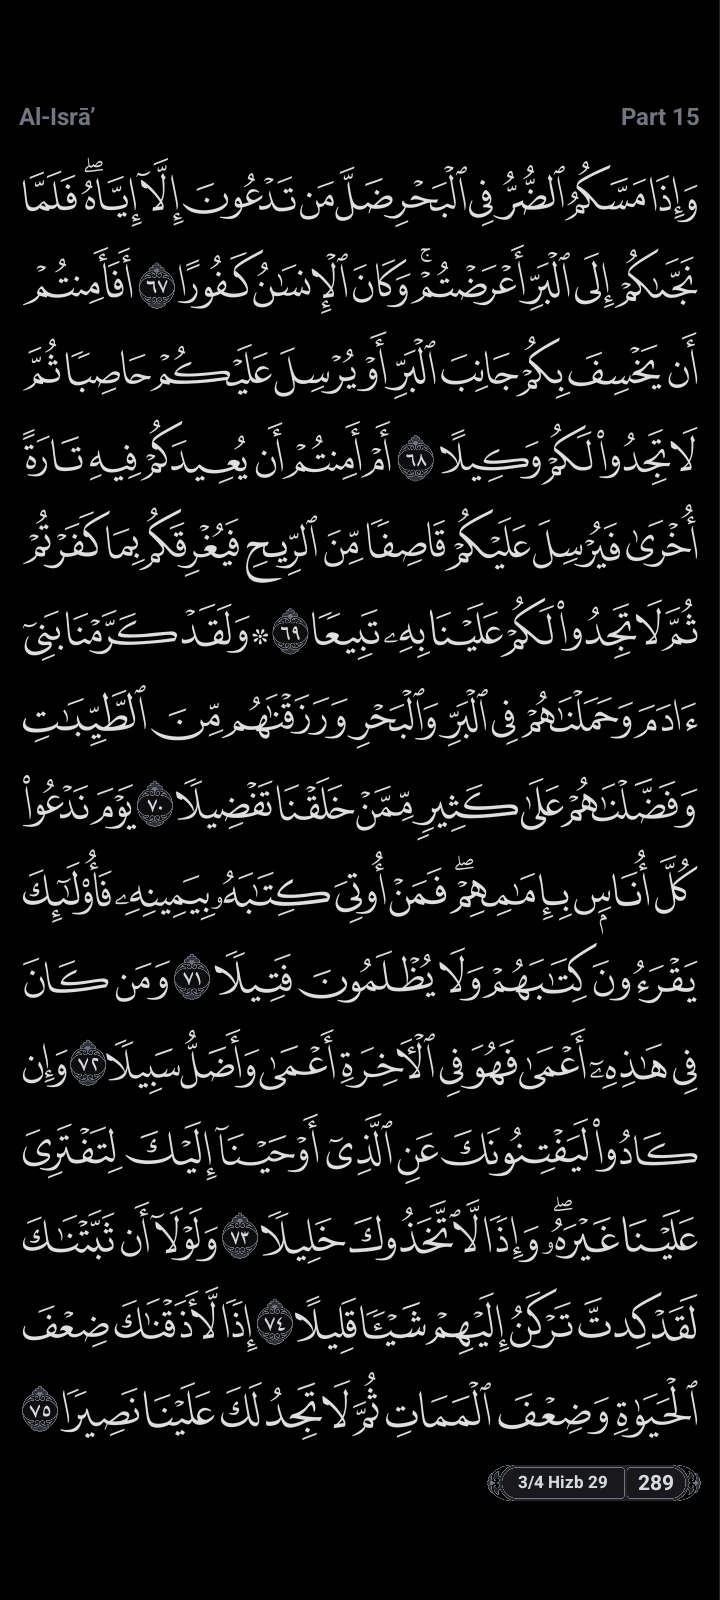 Al-Isrā’ Part 15
وَإِذَا مَسَّكُمُ ٱلضُّرُّ فِي ٱلْبَحْرِ ضَلَّ مَن تَدْعُونَ إِلَّآ إِيَّاهُۖ فَلَمَّا
نَجَّىٰكُمْ إِلَى ٱلْبَرِّ أَعْرَضْتُمْۚ وَكَانَ ٱلْإِنسَـٰنُ كَفُورًا ٦٧ أَفَأَمِنتُمْ
أَن يَخْسِفَ بِكُمْ جَانِبَ ٱلْبَرِّ أَوْ يُرْسِلَ عَلَيْكُمْ حَاصِبًا ثُمَّ
لَا تَجِدُوا۟ لَكُمْ وَكِيلًا ٦٨ أَمْ أَمِنتُمْ أَن يُعِيدَكُمْ فِيهِ تَارَةً
أُخْرَىٰ فَيُرْسِلَ عَلَيْكُمْ قَاصِفًا مِّنَ ٱلرِّيحِ فَيُغْرِقَكُم بِمَا كَفَرْتُمْ
ثُمَّ لَا تَجِدُوا۟ لَكُمْ عَلَيْنَا بِهِۦ تَبِيعًا ٦٩ ۞ وَلَقَدْ كَرَّمْنَا بَنِىٓ
ءَادَمَ وَحَمَلْنَـٰهُمْ فِى ٱلْبَرِّ وَٱلْبَحْرِ وَرَزَقْنَـٰهُم مِّنَ ٱلطَّيِّبَـٰتِ
وَفَضَّلْنَـٰهُمْ عَلَىٰ كَثِيرٍ مِّمَّنْ خَلَقْنَا تَفْضِيلًا ٧٠ يَوْمَ نَدْعُوا۟
كُلَّ أُنَاسٍۭ بِإِمَـٰمِهِمْۖ فَمَنْ أُوتِىَ كِتَـٰبَهُۥ بِيَمِينِهِۦ فَأُو۟لَـٰٓئِكَ
يَقْرَءُونَ كِتَـٰبَهُمْ وَلَا يُظْلَمُونَ فَتِيلًا ٧١ وَمَن كَانَ
فِى هَـٰذِهِۦٓ أَعْمَىٰ فَهُوَ فِى ٱلْـَٔاخِرَةِ أَعْمَىٰ وَأَضَلُّ سَبِيلًا ٧٢ وَإِن
كَادُوا۟ لَيَفْتِنُونَكَ عَنِ ٱلَّذِىٓ أَوْحَيْنَآ إِلَيْكَ لِتَفْتَرِىَ
عَلَيْنَا غَيْرَهُۥۖ وَإِذًا لَّٱتَّخَذُوكَ خَلِيلًا ٧٣ وَلَوْلَآ أَن ثَبَّتْنَـٰكَ
لَقَدْ كِدتَّ تَرْكَنُ إِلَيْهِمْ شَيْـًٔا قَلِيلًا ٧٤ إِذًا لَّأَذَقْنَـٰكَ ضِعْفَ
ٱلْحَيَوٰةِ وَضِعْفَ ٱلْمَمَاتِ ثُمَّ لَا تَجِدُ لَكَ عَلَيْنَا نَصِيرًا ٧٥
3/4 Hizb 29 289